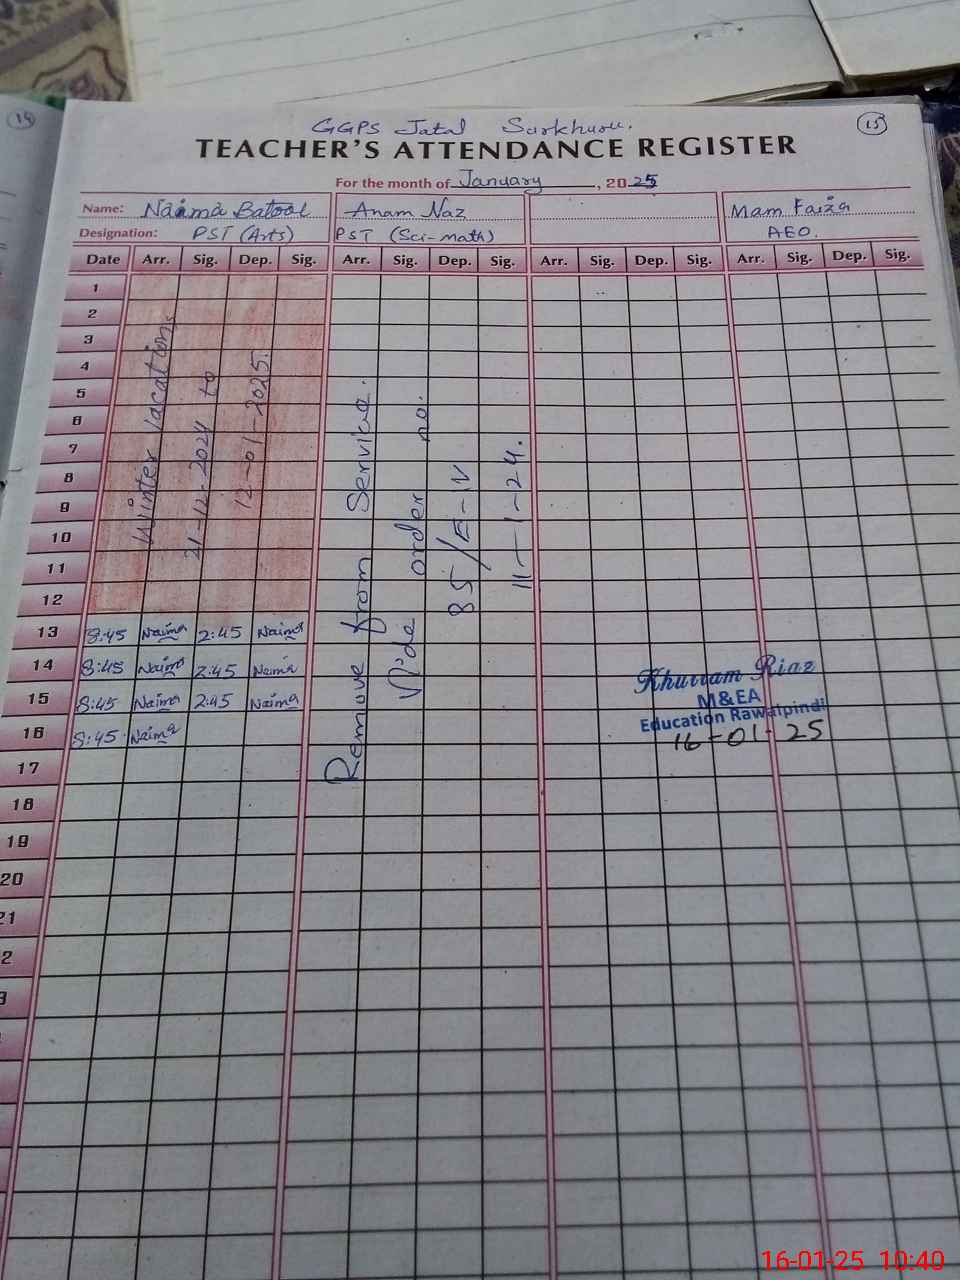 14
15
GGPS Jatal Surkhuru.
TEACHER'S ATTENDANCE REGISTER
For the month of January, 2025
Name: Naima Batool Anam Naz Mam Faiza
Designation: PST (Arts) PST (Sci-math) AEO.
Date Arr. Sig. Dep. Sig. Arr. Sig. Dep. Sig. Arr. Sig. Dep. Sig. Arr. Sig. Dep. Sig.
1
2
3
4
5
6
7
8
9
10
11
12
Winter vacations
21-12-2024 to
12-01-2025.
Remove from Service.
Vide order no.
85/E-IV
11-1-24.
13 8:45 Naima 2:45 Naima
14 8:45 Naima 2:45 Naima
15 8:45 Naima 2:45 Naima
16 8:45 Naima
Khurram Riaz
M&EA
Education Rawalpindi
16-01-25
17
18
19
20
21
2
3
16-01-25 10:40